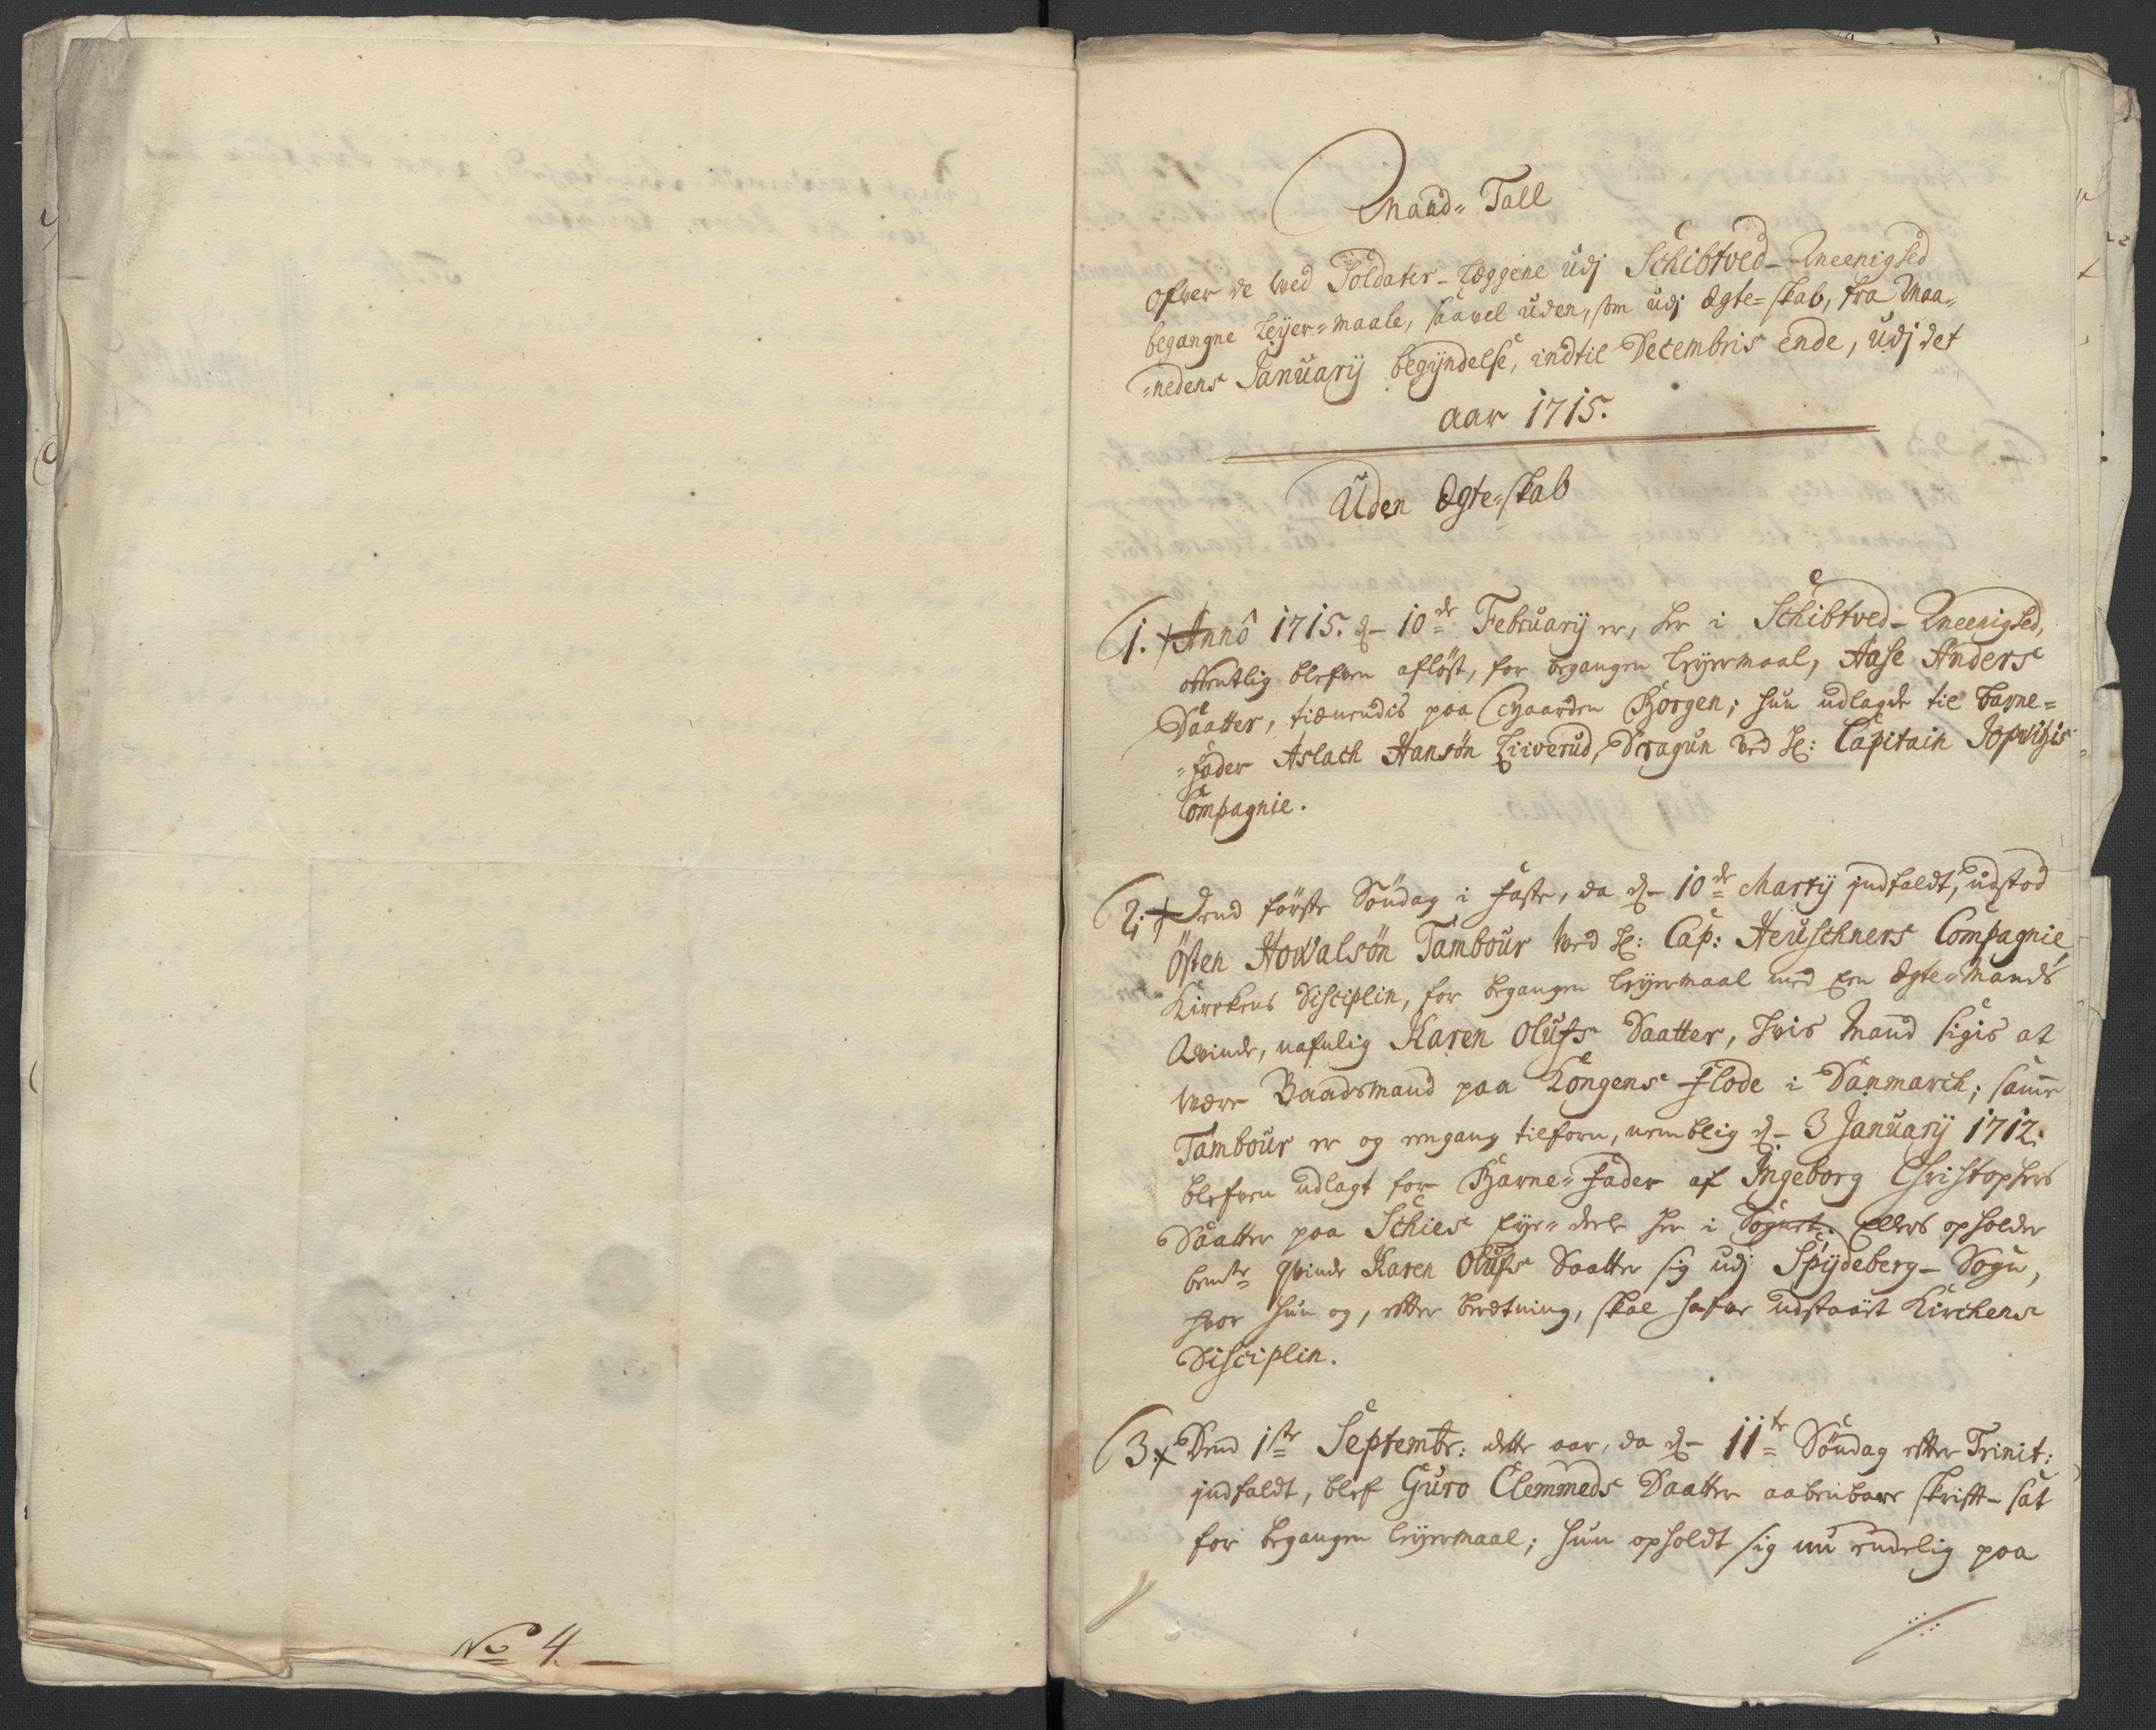 No 4.
Mand= Tall
ofver de ved Soldater-Læggene udj Schibtved-Meenighed
begangne Leyer=maale, saavel uden, som udj Ægte=skab, fra Maa=
=nedens Januarij begÿndelse, indtil Decembris ende, udj det
aar 1715.
Uden Ægte=skab
1. Annô 1715. d- 10de Februarij er, her i Schibtved-Meenighed,
offentlig blefven afløst, for begangen Leyermaal, Aase Anders
Daatter, tienendis paa Gaarden Borgen; hun udlagde til Barne=
=fader Aslach Hansøn Liiverud, Dragun ved Hr: Capitain
Compagnie.
2. Dend første Søndag i Faste, da d- 10de Martij indfaldt, udstod
Østen Howalsøn Tambour ved Hr: Cap: Heuschners Compagnie,
Kirckens Disciplin, for begangen Leyermaal med een Ægte=Mands
Qvinde, nafnlig Karen Olufs Daatter, hvis Mand sigis at
være Baadsmand paa Kongens Flode i Danmarch; samme
Tambour er og eengang tilforn, nemblig d- 3 Januarij 1712.
blefven udlagt for Barne=Fader af Ingeborg Christophers
Daatter paa Schies Eÿe=deele her i Sognet. Ellers opholder
bemte Qvinde Karen Olufs Daatter sig udj Spÿdeberg-Sogn,
hvor hun og, efter beretning, skal hafve udstaaet Kirchens
Disciplin.
3. Dend 1ste Septembr: dette aar, da d- 11te Søndag efter Trinit:
indfaldt, blef Guro Clemmeds Daatter aabenbare skrifft-sat
for begangen Leyermaal; hun opholdt sig nu endelig paa